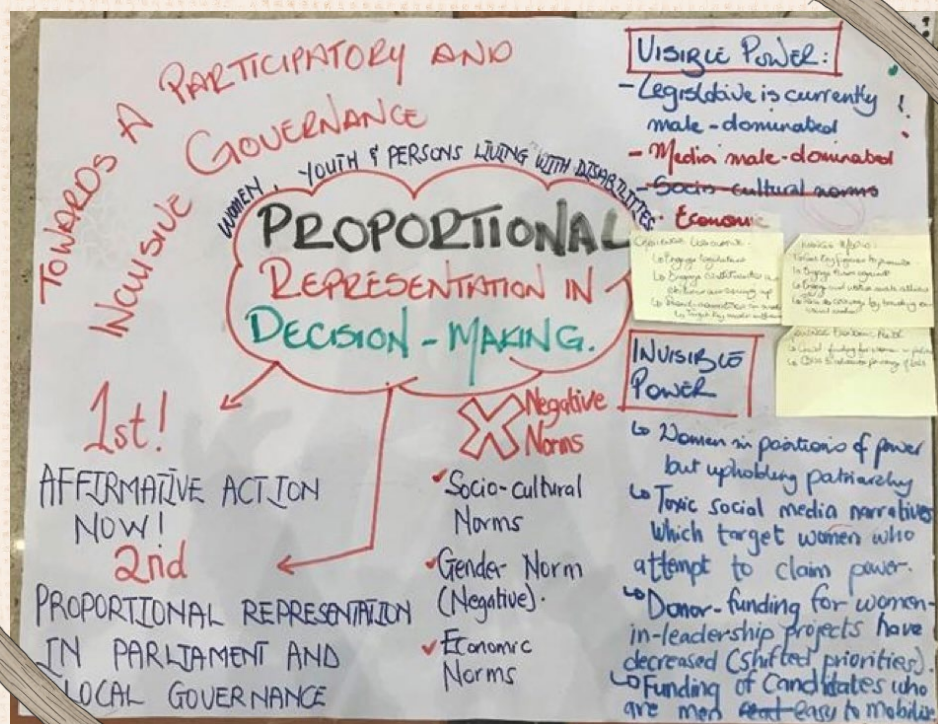 TOWARDS A PARTICIPATORY AND
INCUSIVE GOVERNANCE
WOMEN, YOUTH & PERSONS LIVING WITH DISABILITIES
PROPORTIONAL
REPRESENTATION IN
DECISION-MAKING.
1st!
AFFIRMATIVE ACTION
NOW!
2nd
PROPORTIONAL REPRESENTATION
IN PARLIAMENT AND
LOCAL GOVERNANCE
Negative
Norms
Socio-cultural
Norms
Gender Norm
(Negative).
Economic
Norms
VISIBLE POWER:
- Legislative is currently
male-dominated
- Media male-dominated
- Socio-cultural norms
Economic
Engage legislators
Engage
INVISIBLE
POWER
Women in positions of power
but upholding patriarchy
Toxic social media narratives
which target women who
attempt to claim power.
Donor-funding for women-
in-leadership projects have
decreased (shifted priorities).
Funding of Candidates who
are men easy to mobilise